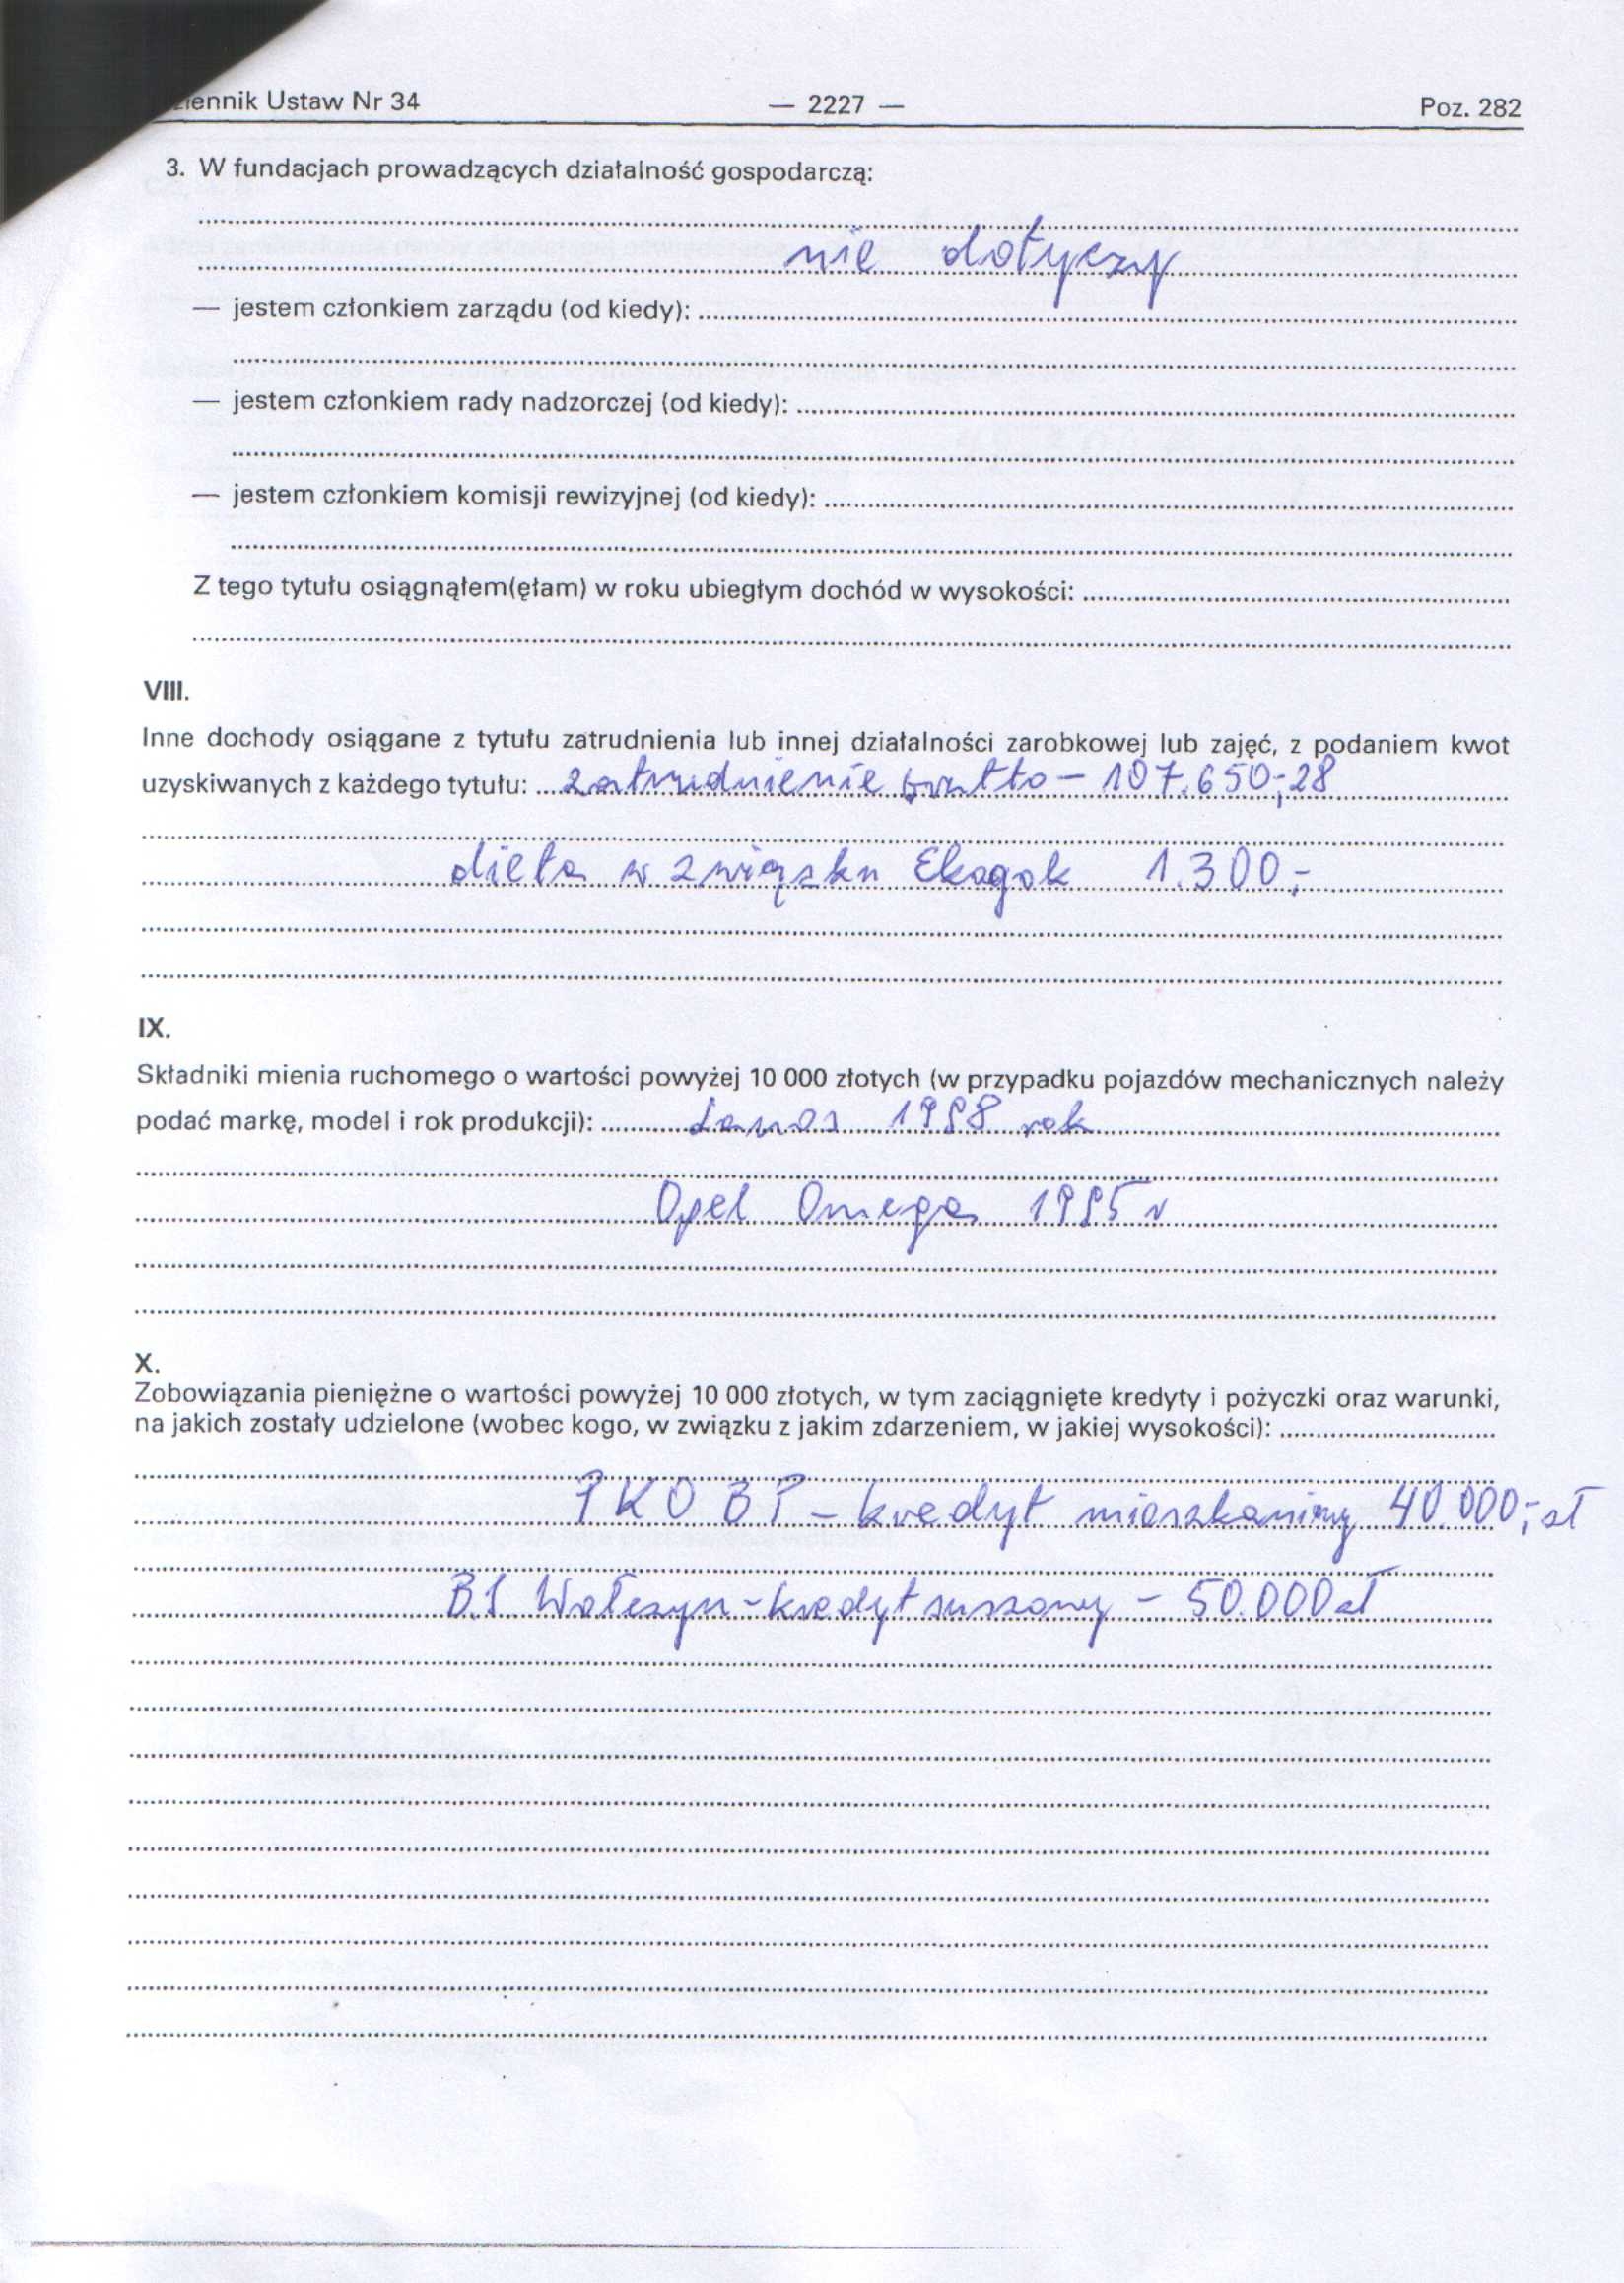 iennik Ustaw Nr 34 — 2227 — Poz. 282
3. W fundacjach prowadzących działalność gospodarczą:
nie dotyczy
— jestem członkiem zarządu (od kiedy):
— jestem członkiem rady nadzorczej (od kiedy):
— jestem członkiem komisji rewizyjnej (od kiedy):
Z tego tytułu osiągnąłem(ęłam) w roku ubiegłym dochód w wysokości:
VIII.
Inne dochody osiągane z tytułu zatrudnienia lub innej działalności zarobkowej lub zajęć, z podaniem kwot
uzyskiwanych z każdego tytułu: zatrudnienie brutto – 107.650,28
dieta w związku Ekogok 1.300,-
IX.
Składniki mienia ruchomego o wartości powyżej 10 000 złotych (w przypadku pojazdów mechanicznych należy
podać markę, model i rok produkcji): Lanos 1998 rok
Opel Omega 1995 r
X.
Zobowiązania pieniężne o wartości powyżej 10 000 złotych, w tym zaciągnięte kredyty i pożyczki oraz warunki,
na jakich zostały udzielone (wobec kogo, w związku z jakim zdarzeniem, w jakiej wysokości):
PKO BP – kredyt mieszkaniowy 40.000,- zł
B.S Wołczyn - kredyt – 50.000 zł